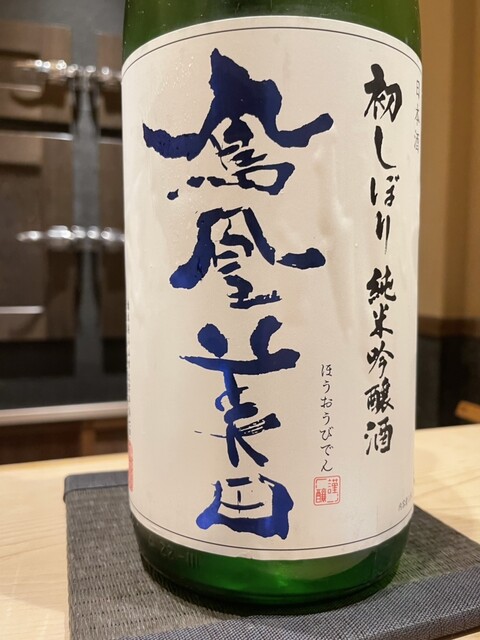 日本酒
初しぼり 純米吟醸酒
鳳凰美田
ほうおうびでん
謹醸